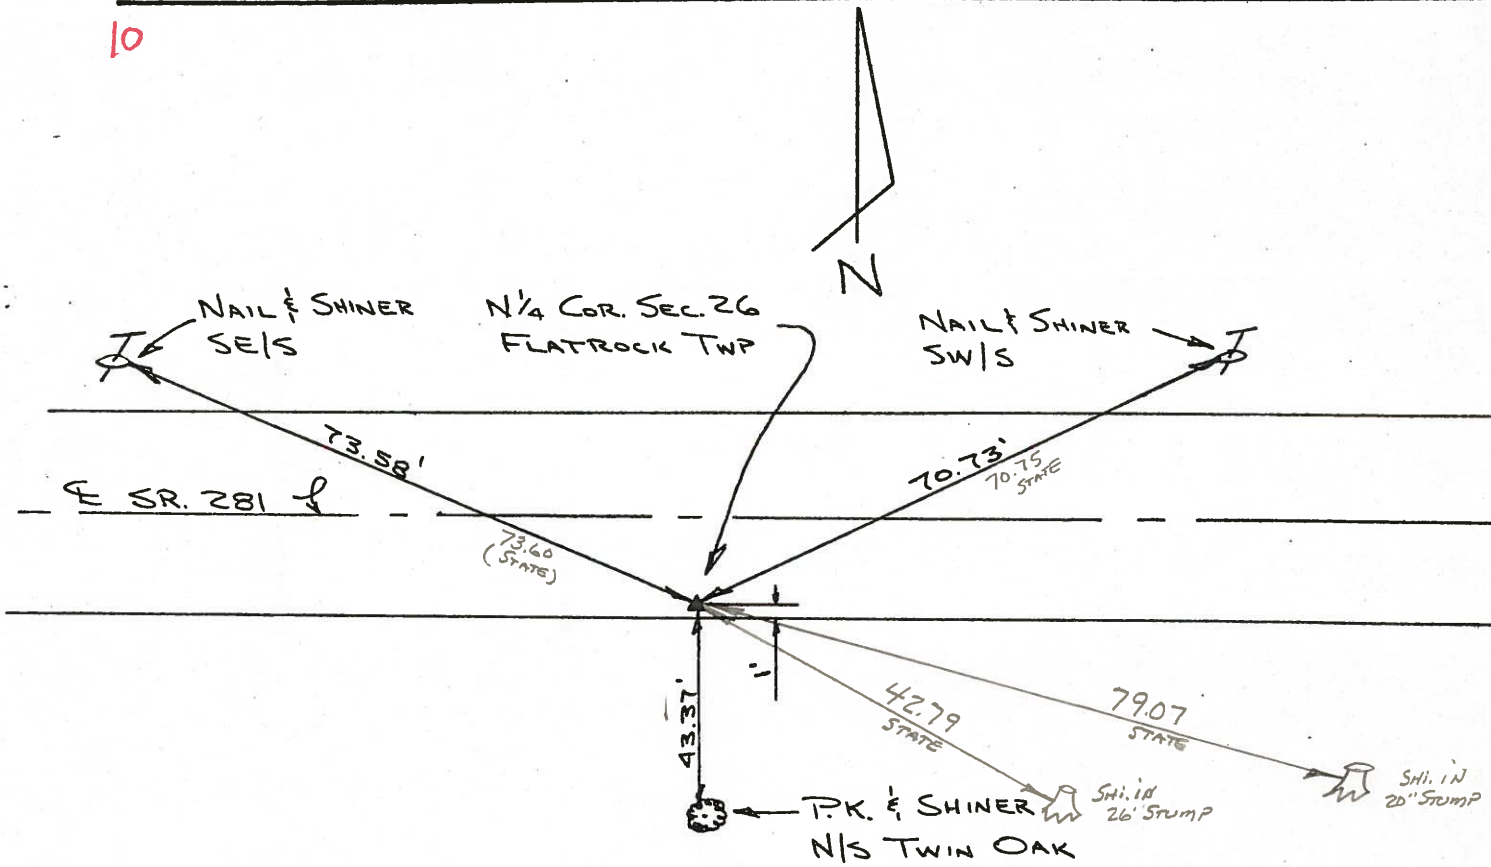 10
N
NAIL & SHINER
SE/S
N 1/4 COR. SEC. 26
FLATROCK TWP
NAIL & SHINER
SW/S
73.58'
70.73'
70.75
STATE
℄ SR. 281
73.60
(STATE)
1'
43.37'
42.79
STATE
79.07
STATE
SHI. IN
20" STUMP
SHI. IN
26" STUMP
P.K. & SHINER
N/S TWIN OAK